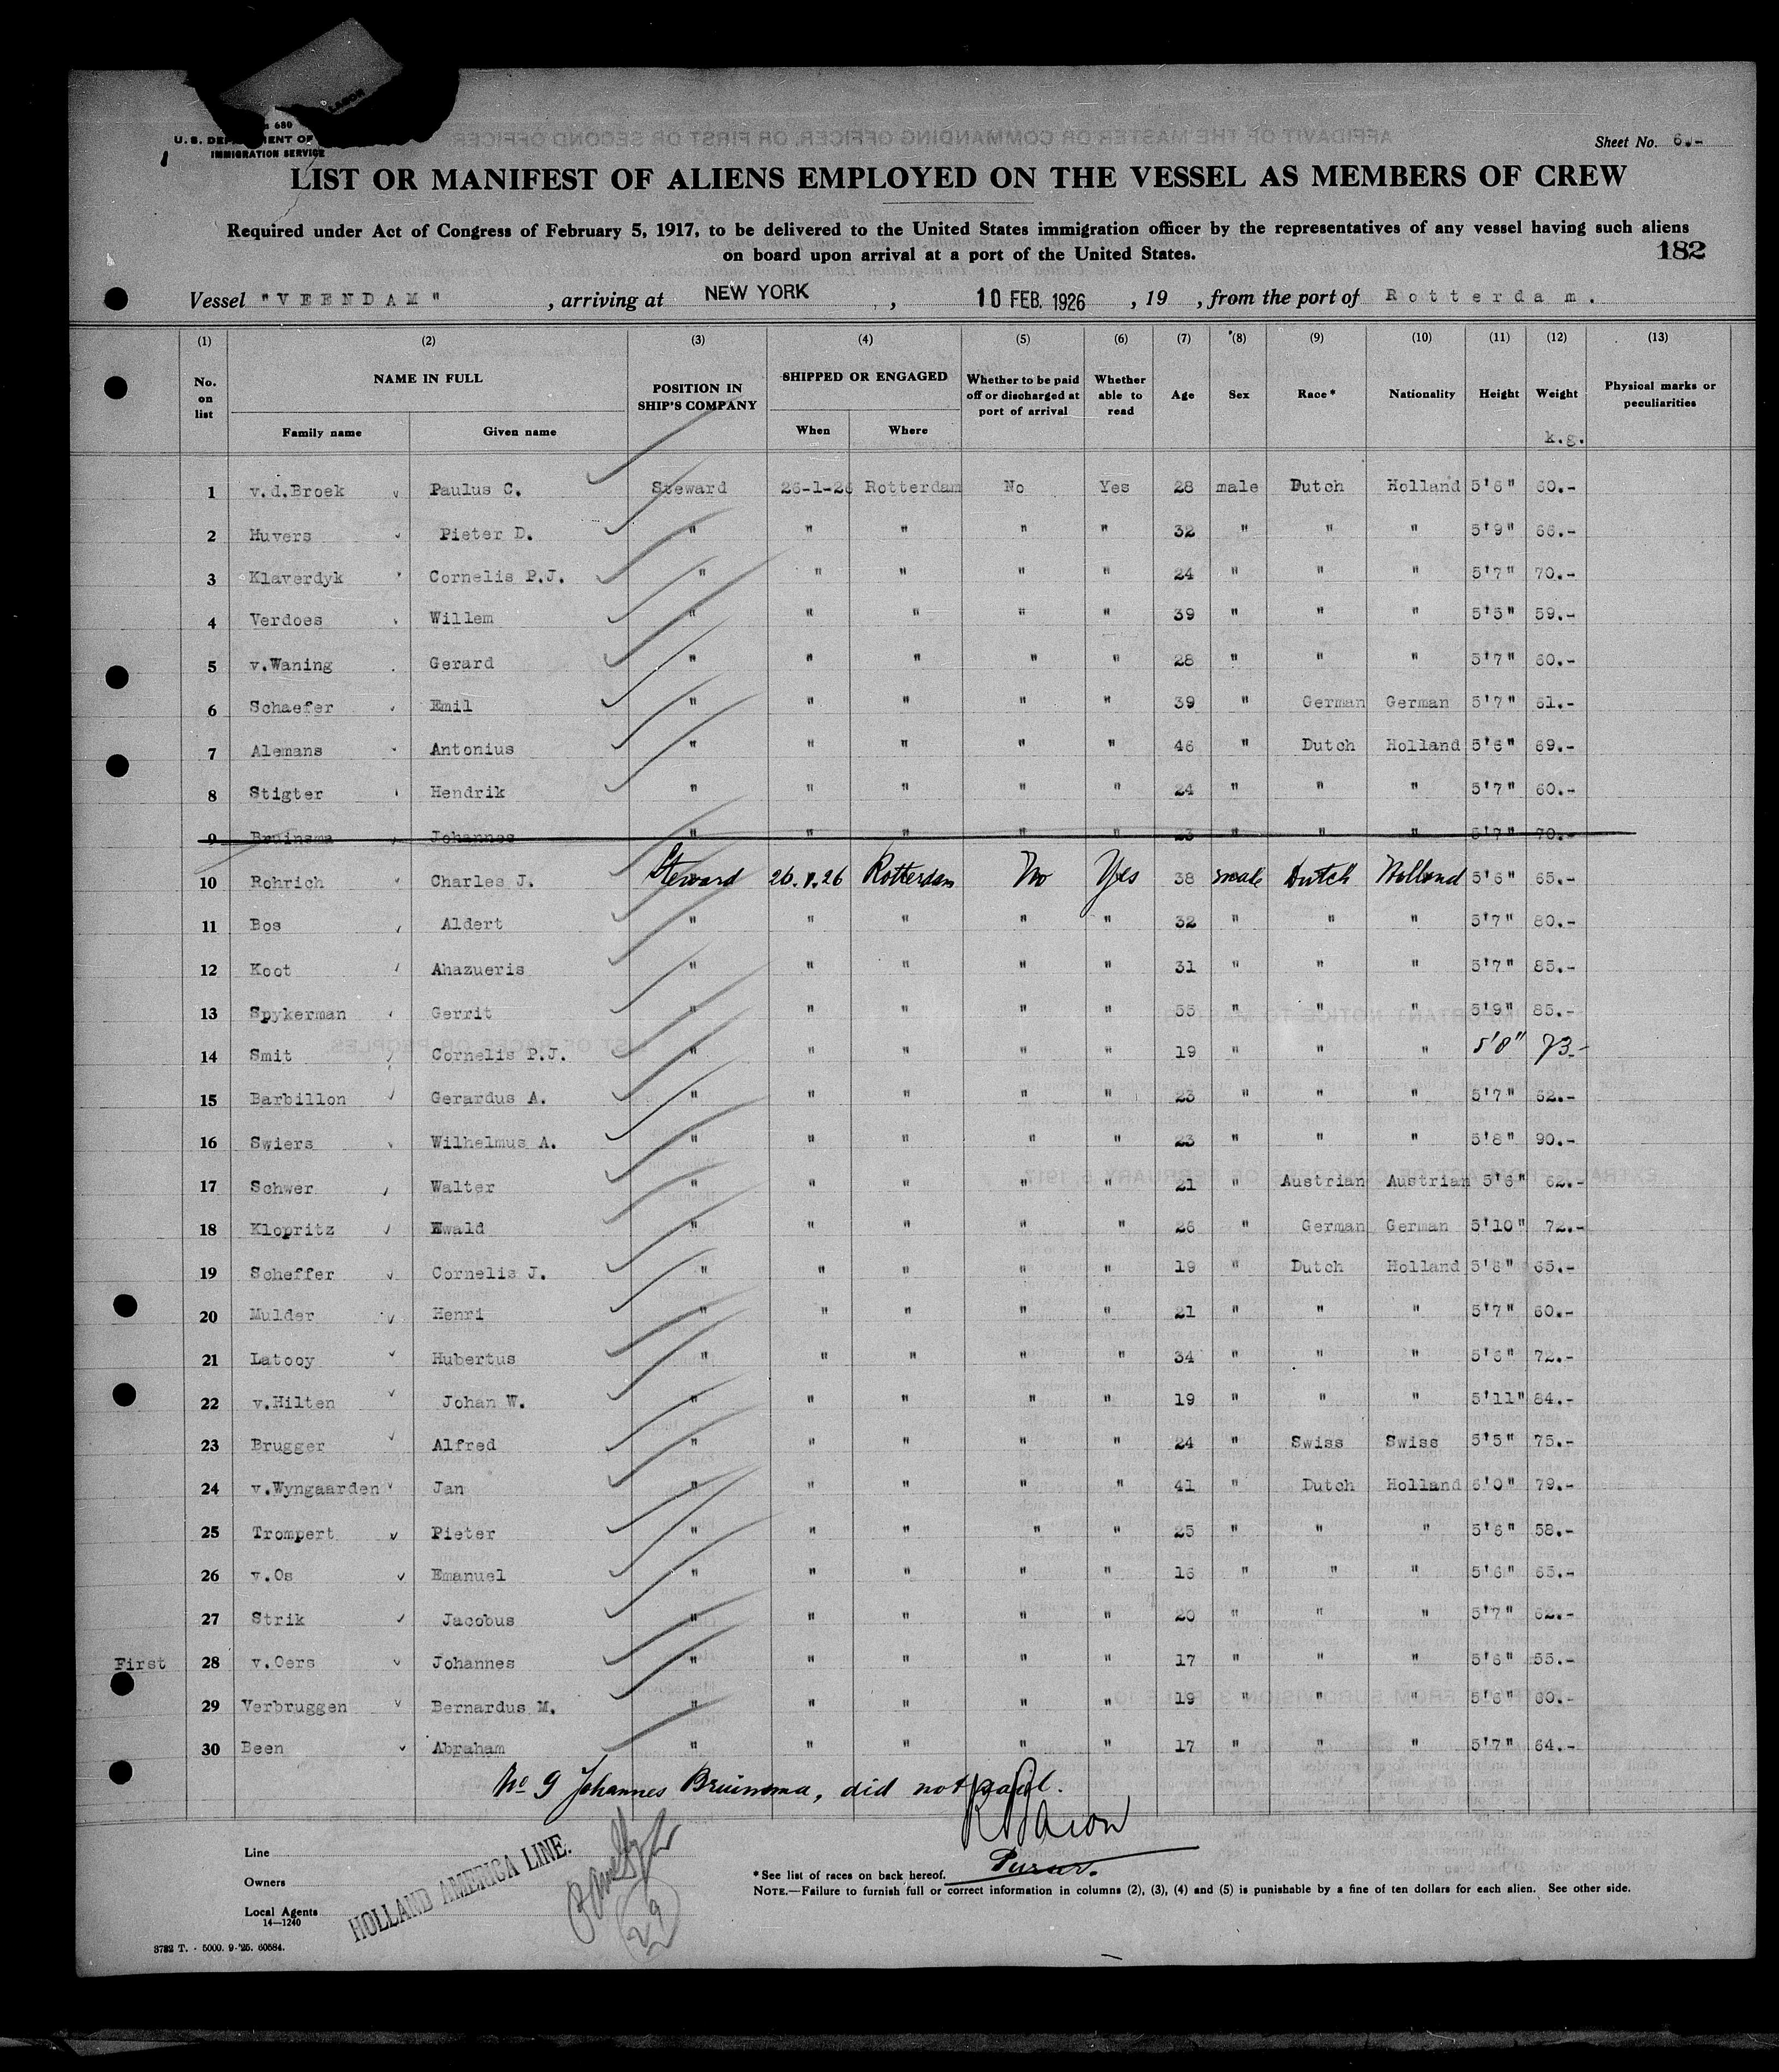 LABOR
680
U. S. DEPARTMENT OF
IMMIGRATION SERVICE
Sheet No. 6.-
LIST OR MANIFEST OF ALIENS EMPLOYED ON THE VESSEL AS MEMBERS OF CREW
Required under Act of Congress of February 5, 1917, to be delivered to the United States immigration officer by the representatives of any vessel having such aliens
on board upon arrival at a port of the United States.
182
Vessel "VEENDAM", arriving at NEW YORK, 10 FEB. 1926, 19 , from the port of Rotterdam.
(1) (2) (3) (4) (5) (6) (7) (8) (9) (10) (11) (12) (13)
No. on list NAME IN FULL Family name Given name POSITION IN SHIP'S COMPANY SHIPPED OR ENGAGED When Where Whether to be paid off or discharged at port of arrival Whether able to read Age Sex Race* Nationality Height Weight k.g. Physical marks or peculiarities
1 v.d.Broek Paulus C. Steward 26-1-26 Rotterdam No Yes 28 male Dutch Holland 5'6" 60.-
2 Huvers Pieter D. " " " " " 32 " " " 5'9" 66.-
3 Klaverdyk Cornelis P.J. " " " " " 24 " " " 5'7" 70.-
4 Verdoes Willem " " " " " 39 " " " 5'5" 59.-
5 v.Waning Gerard " " " " " 28 " " " 5'7" 60.-
6 Schaefer Emil " " " " " 39 " German German 5'7" 61.-
7 Alemans Antonius " " " " " 46 " Dutch Holland 5'6" 69.-
8 Stigter Hendrik " " " " " 24 " " " 5'7" 60.-
9 Bruinsma Johannes " " " " " 23 " " " 5'7" 70.-
10 Rohrich Charles J. Steward 26.1.26 Rotterdam No Yes 38 male Dutch Holland 5'6" 65.-
11 Bos Aldert " " " " " 32 " " " 5'7" 80.-
12 Koot Ahazueris " " " " " 31 " " " 5'7" 85.-
13 Spykerman Gerrit " " " " " 55 " " " 5'9" 85.-
14 Smit Cornelis P.J. " " " " " 19 " " " 5'8" 73.-
15 Barbillon Gerardus A. " " " " " 23 " " " 5'7" 62.-
16 Swiers Wilhelmus A. " " " " " 23 " " " 5'8" 90.-
17 Schwer Walter " " " " " 21 " Austrian Austrian 5'6" 62.-
18 Klopritz Ewald " " " " " 26 " German German 5'10" 72.-
19 Scheffer Cornelis J. " " " " " 19 " Dutch Holland 5'8" 65.-
20 Mulder Henri " " " " " 21 " " " 5'7" 60.-
21 Latooy Hubertus " " " " " 34 " " " 5'6" 72.-
22 v.Hilten Johan W. " " " " " 19 " " " 5'11" 84.-
23 Brugger Alfred " " " " " 24 " Swiss Swiss 5'5" 75.-
24 v.Wyngaarden Jan " " " " " 41 " Dutch Holland 6'0" 79.-
25 Trompert Pieter " " " " " 25 " " " 5'6" 58.-
26 v.Os Emanuel " " " " " 16 " " " 5'6" 65.-
27 Strik Jacobus " " " " " 20 " " " 5'7" 62.-
First 28 v.Oers Johannes " " " " " 17 " " " 5'6" 55.-
29 Verbruggen Bernardus M. " " " " " 19 " " " 5'6" 60.-
30 Been Abraham " " " " " 17 " " " 5'7" 64.-
No 9 Johannes Bruinsma, did not sail.
Purser.
Line
Owners
Local Agents
HOLLAND AMERICA LINE.
29
14—1240
* See list of races on back hereof.
NOTE.—Failure to furnish full or correct information in columns (2), (3), (4) and (5) is punishable by a fine of ten dollars for each alien. See other side.
3782 T. - 5000. 9-'25. 60584.